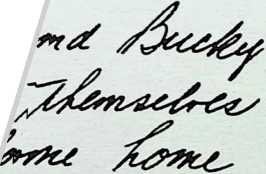 and Bucky
themselves
come home